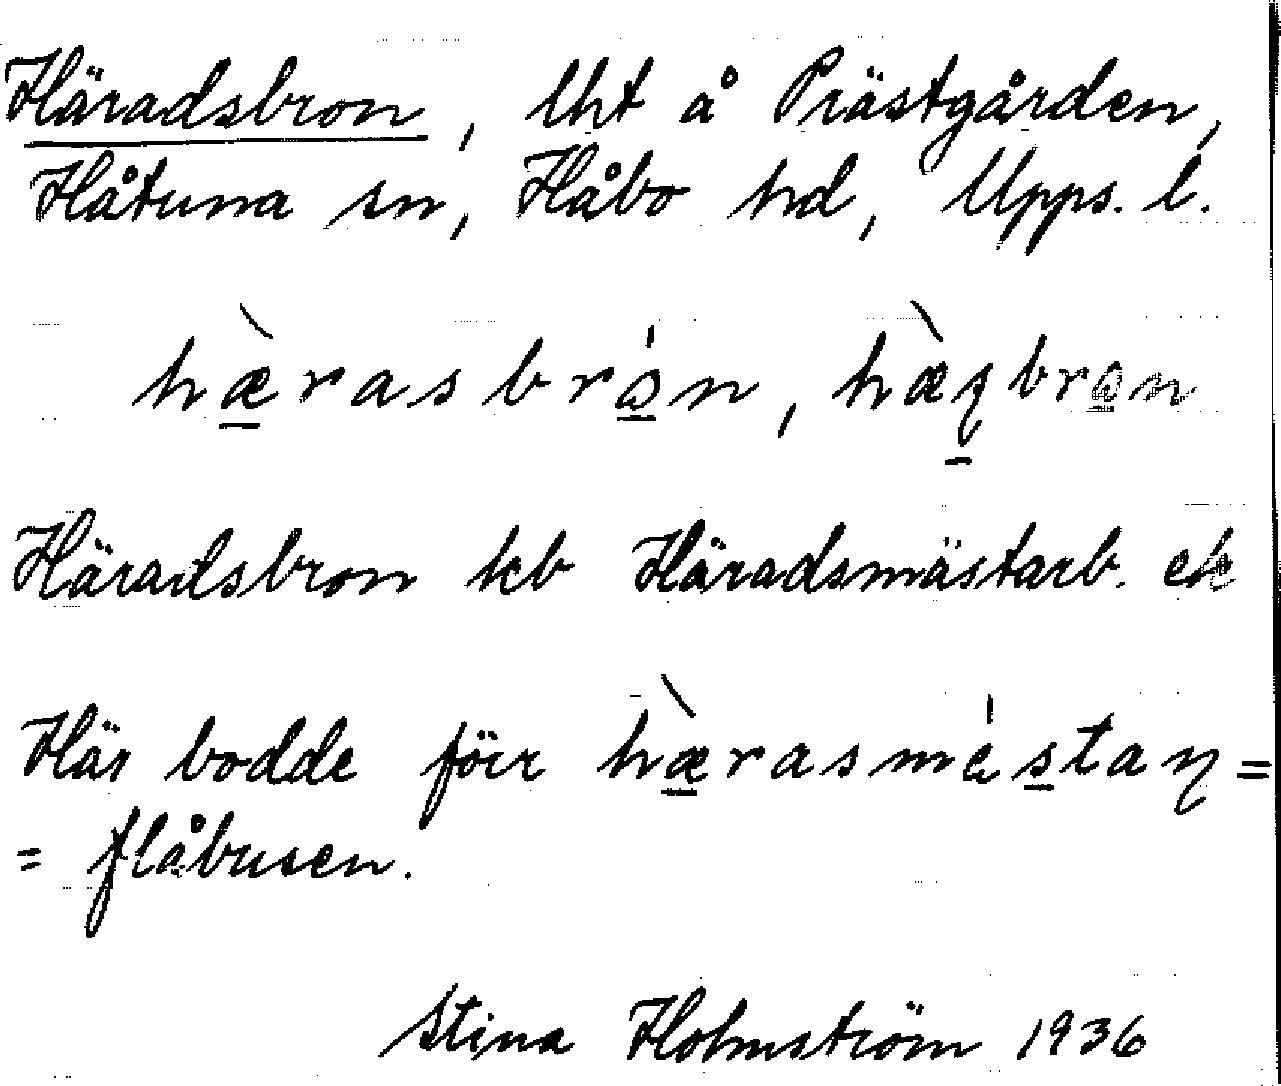 Häradsbron, lht å Prästgården,
Håtuna sn, Håbo hd, Upps. l.
hæ̀rasbrón, hæ̀ʂbron
Häradsbron kb Häradsmästarb. ek
Här bodde förr hæ̀rasméstaɳ=
= flåbusen.
Stina Holmström 1936